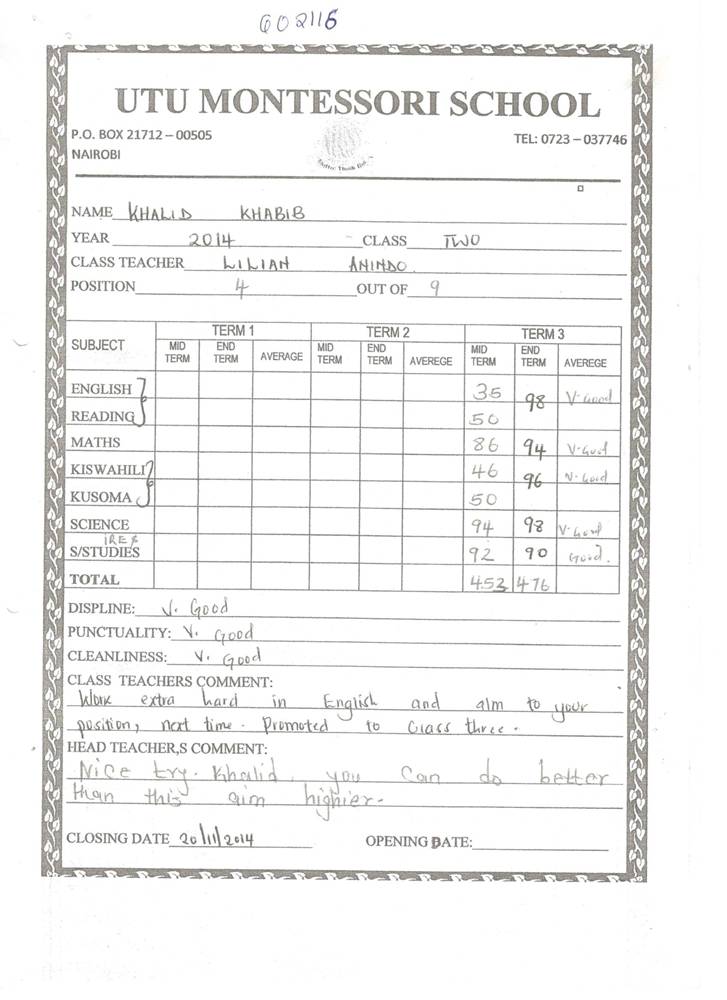 602116
UTU MONTESSORI SCHOOL
P.O. BOX 21712 – 00505
TEL: 0723 – 037746
NAIROBI
NAME KHALID KHABIB
YEAR 2014 CLASS TWO
CLASS TEACHER LILIAN ANINDO
POSITION 4 OUT OF 9
SUBJECT TERM 1 TERM 2 TERM 3
MID TERM END TERM AVERAGE MID TERM END TERM AVEREGE MID TERM END TERM AVEREGE
ENGLISH 35 98 V. Good
READING 50
MATHS 86 94 V. Good
KISWAHILI 46 96 V. Good
KUSOMA 50
SCIENCE 94 98 V. Good
IRE &
S/STUDIES 92 90 Good.
TOTAL 453 476
DISPLINE: V. Good
PUNCTUALITY: V. Good
CLEANLINESS: V. Good
CLASS TEACHERS COMMENT:
Work extra hard in English and aim to your
position, next time. Promoted to Class three.
HEAD TEACHER,S COMMENT:
Nice try. Khalid you can do better
than this aim highier.
CLOSING DATE 20/11/2014 OPENING DATE: